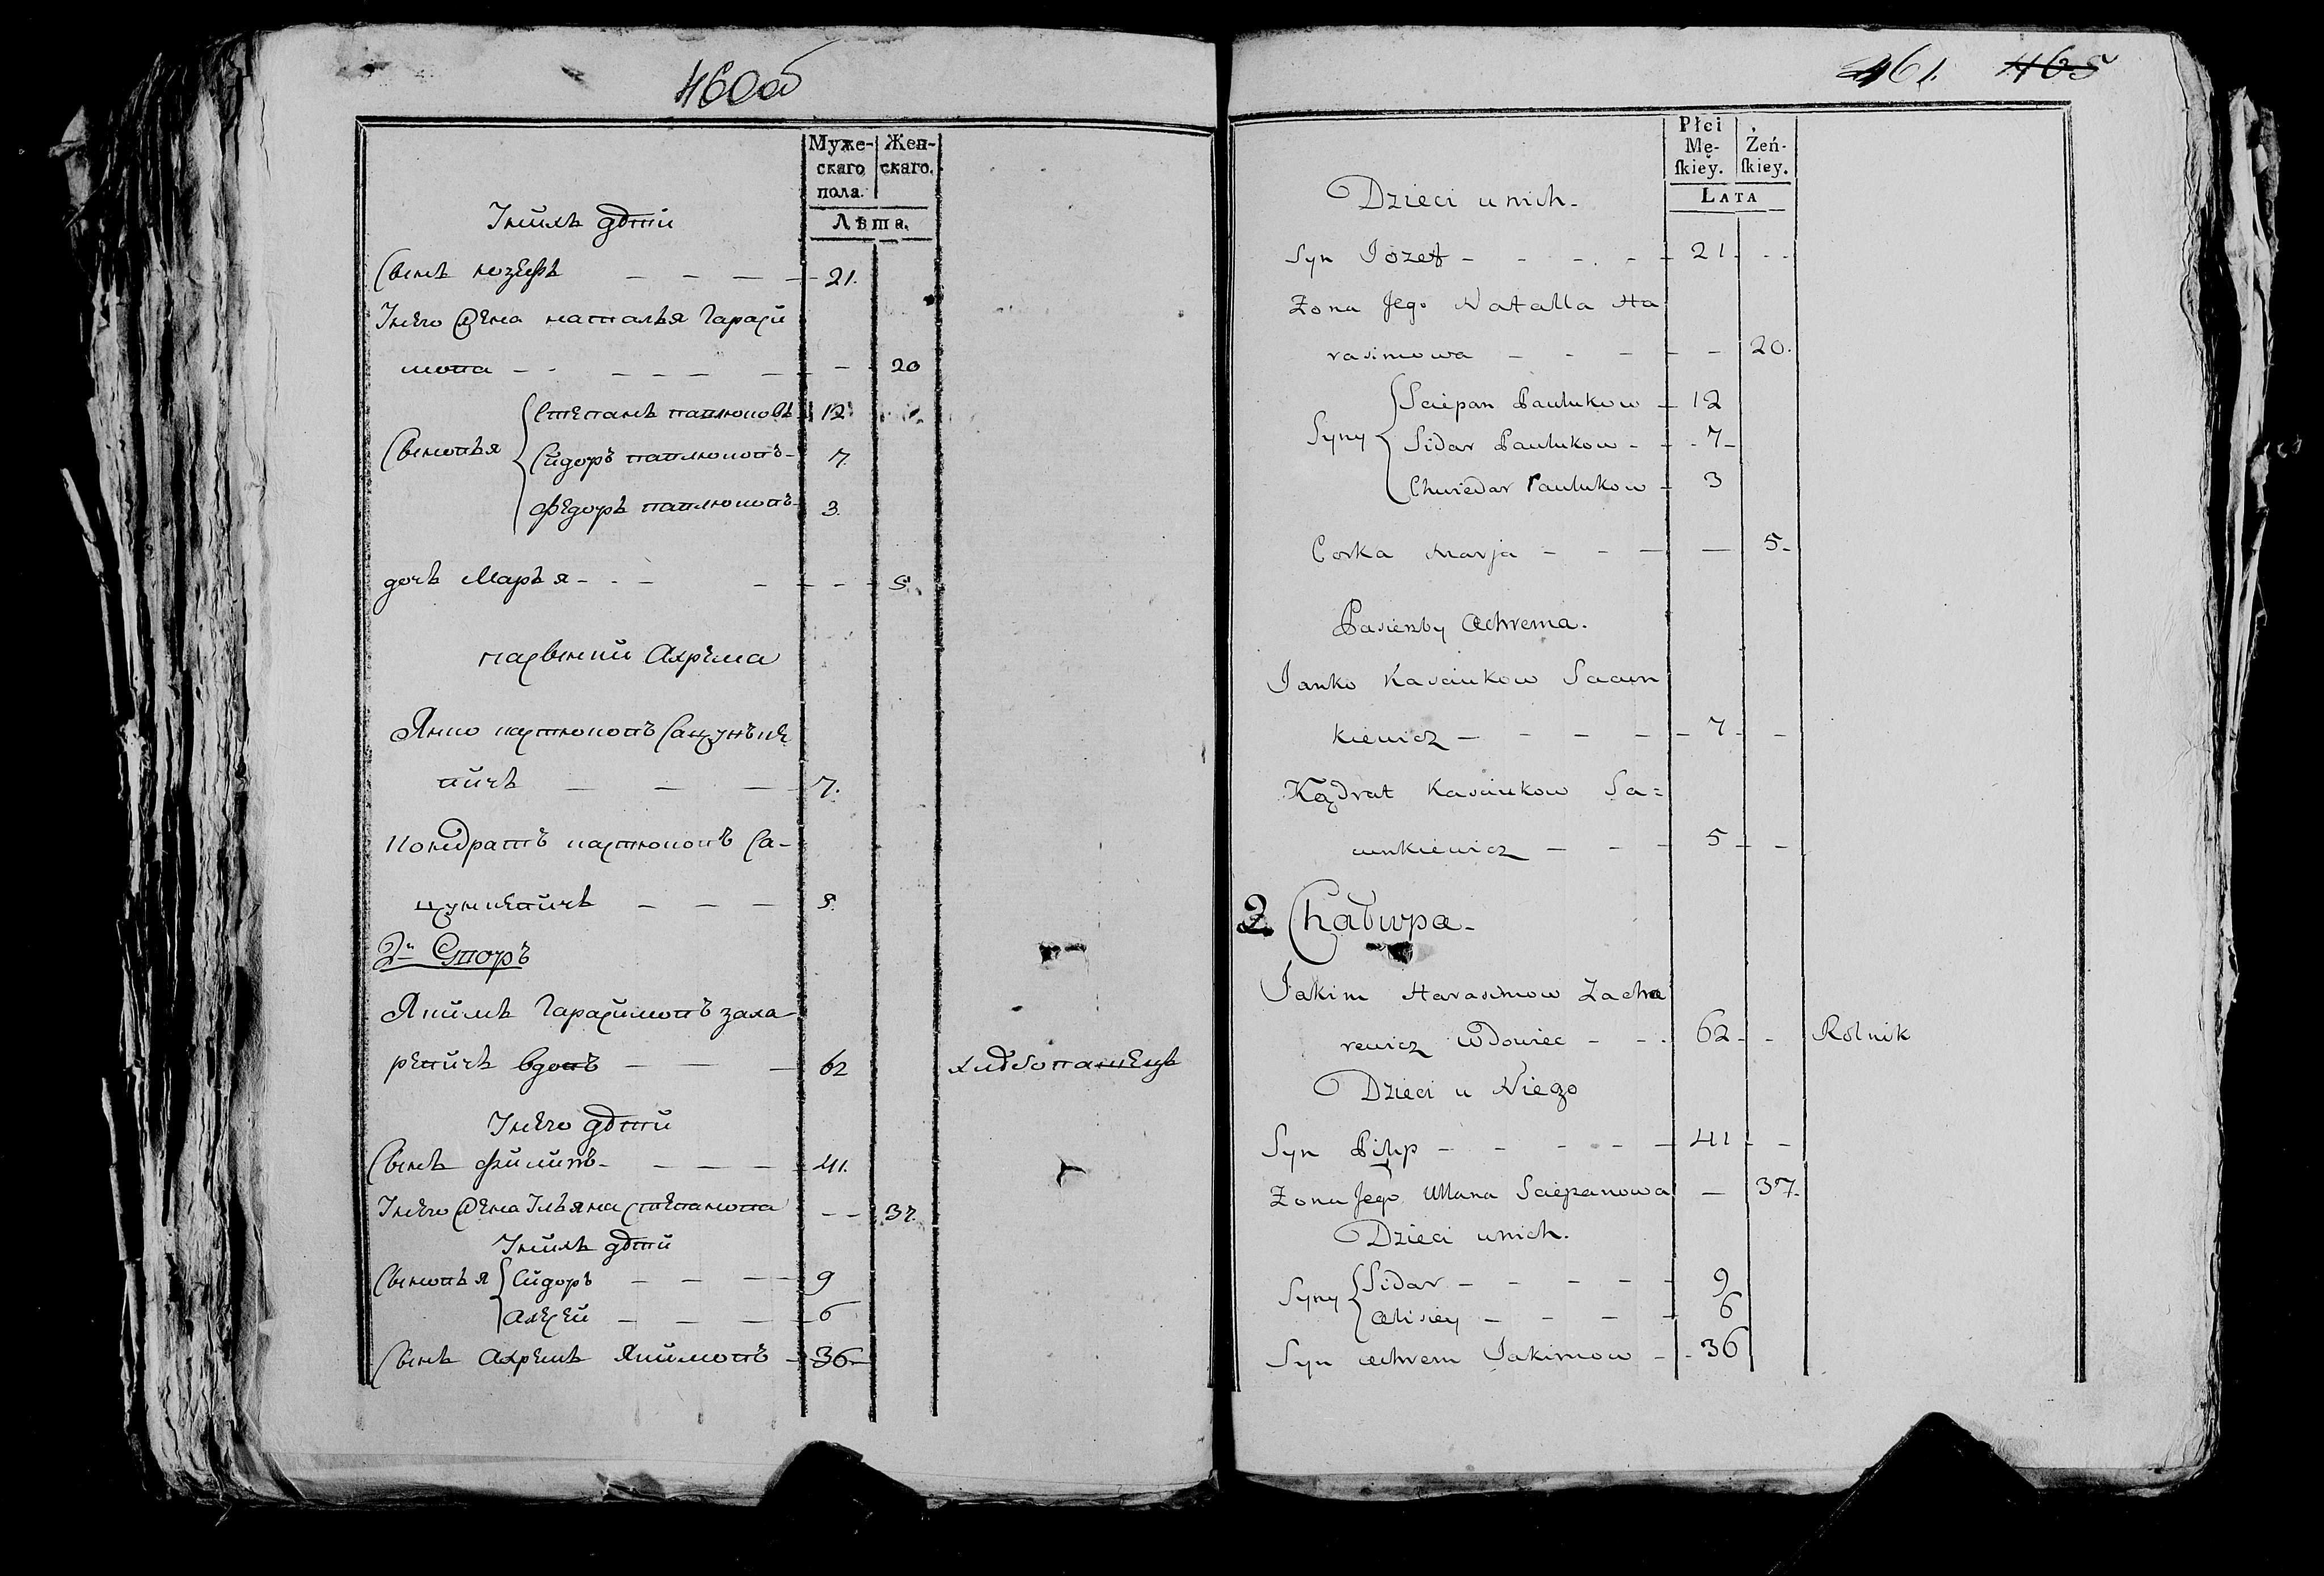 460об
Муже-
скаго
пола.
Жен-
скаго.
Лѣта.
Унихъ дѣти
Сынъ юзефъ 21.
Унего жена наталья Гараси
мова 20
Сыновья
Степанъ павлюковъ 12
Сидоръ павлюковъ 7.
Федоръ павлюковъ 3.
дочь Марья 5.
пасынки Ахрема
Янко кастюковъ Сацунъке
вичь 7.
Кондратъ кастюковъ Са-
цункевичь 5.
2й Дворъ
Якимъ Гарасимовъ заха-
ревичь вдовъ 62 хлѣбопашецъ
Унего дѣти
Сынъ филипъ 41.
Унего жена Ульяна степанова 37.
Унихъ дѣти
Сыновья
Сидоръ 9
Алѣсей 6
Сынъ Ахремъ Якимовъ 36
461. 465
Płci
Mę-
ſkiey.
Żeń-
ſkiey.
LATA
Dzieci u nich
Syn Jozef 21
Zona Jego Natalla Ha
rasimowa 20.
Syny
Sciepan Paulukow 12
Sidar Paulukow 7
Chwiedar Paulukow 3
Corka Marja 5
Pasierzby Achrema.
Janko Kasciukow Sacun
kiewicz 7
Kądrat Kasciukow Sa=
cunkiewicz 5
2. Chałupa
Jakim Harasimow Zacha
rewicz Wdowiec 62 Rolnik
Dzieci u Niego
Syn Pilip 41
Zona Jego Ullana Sciepanowa 37.
Dzieci u nich.
Syny
Sidar 9
Alisiey 6
Syn Achrem Jakimow 36